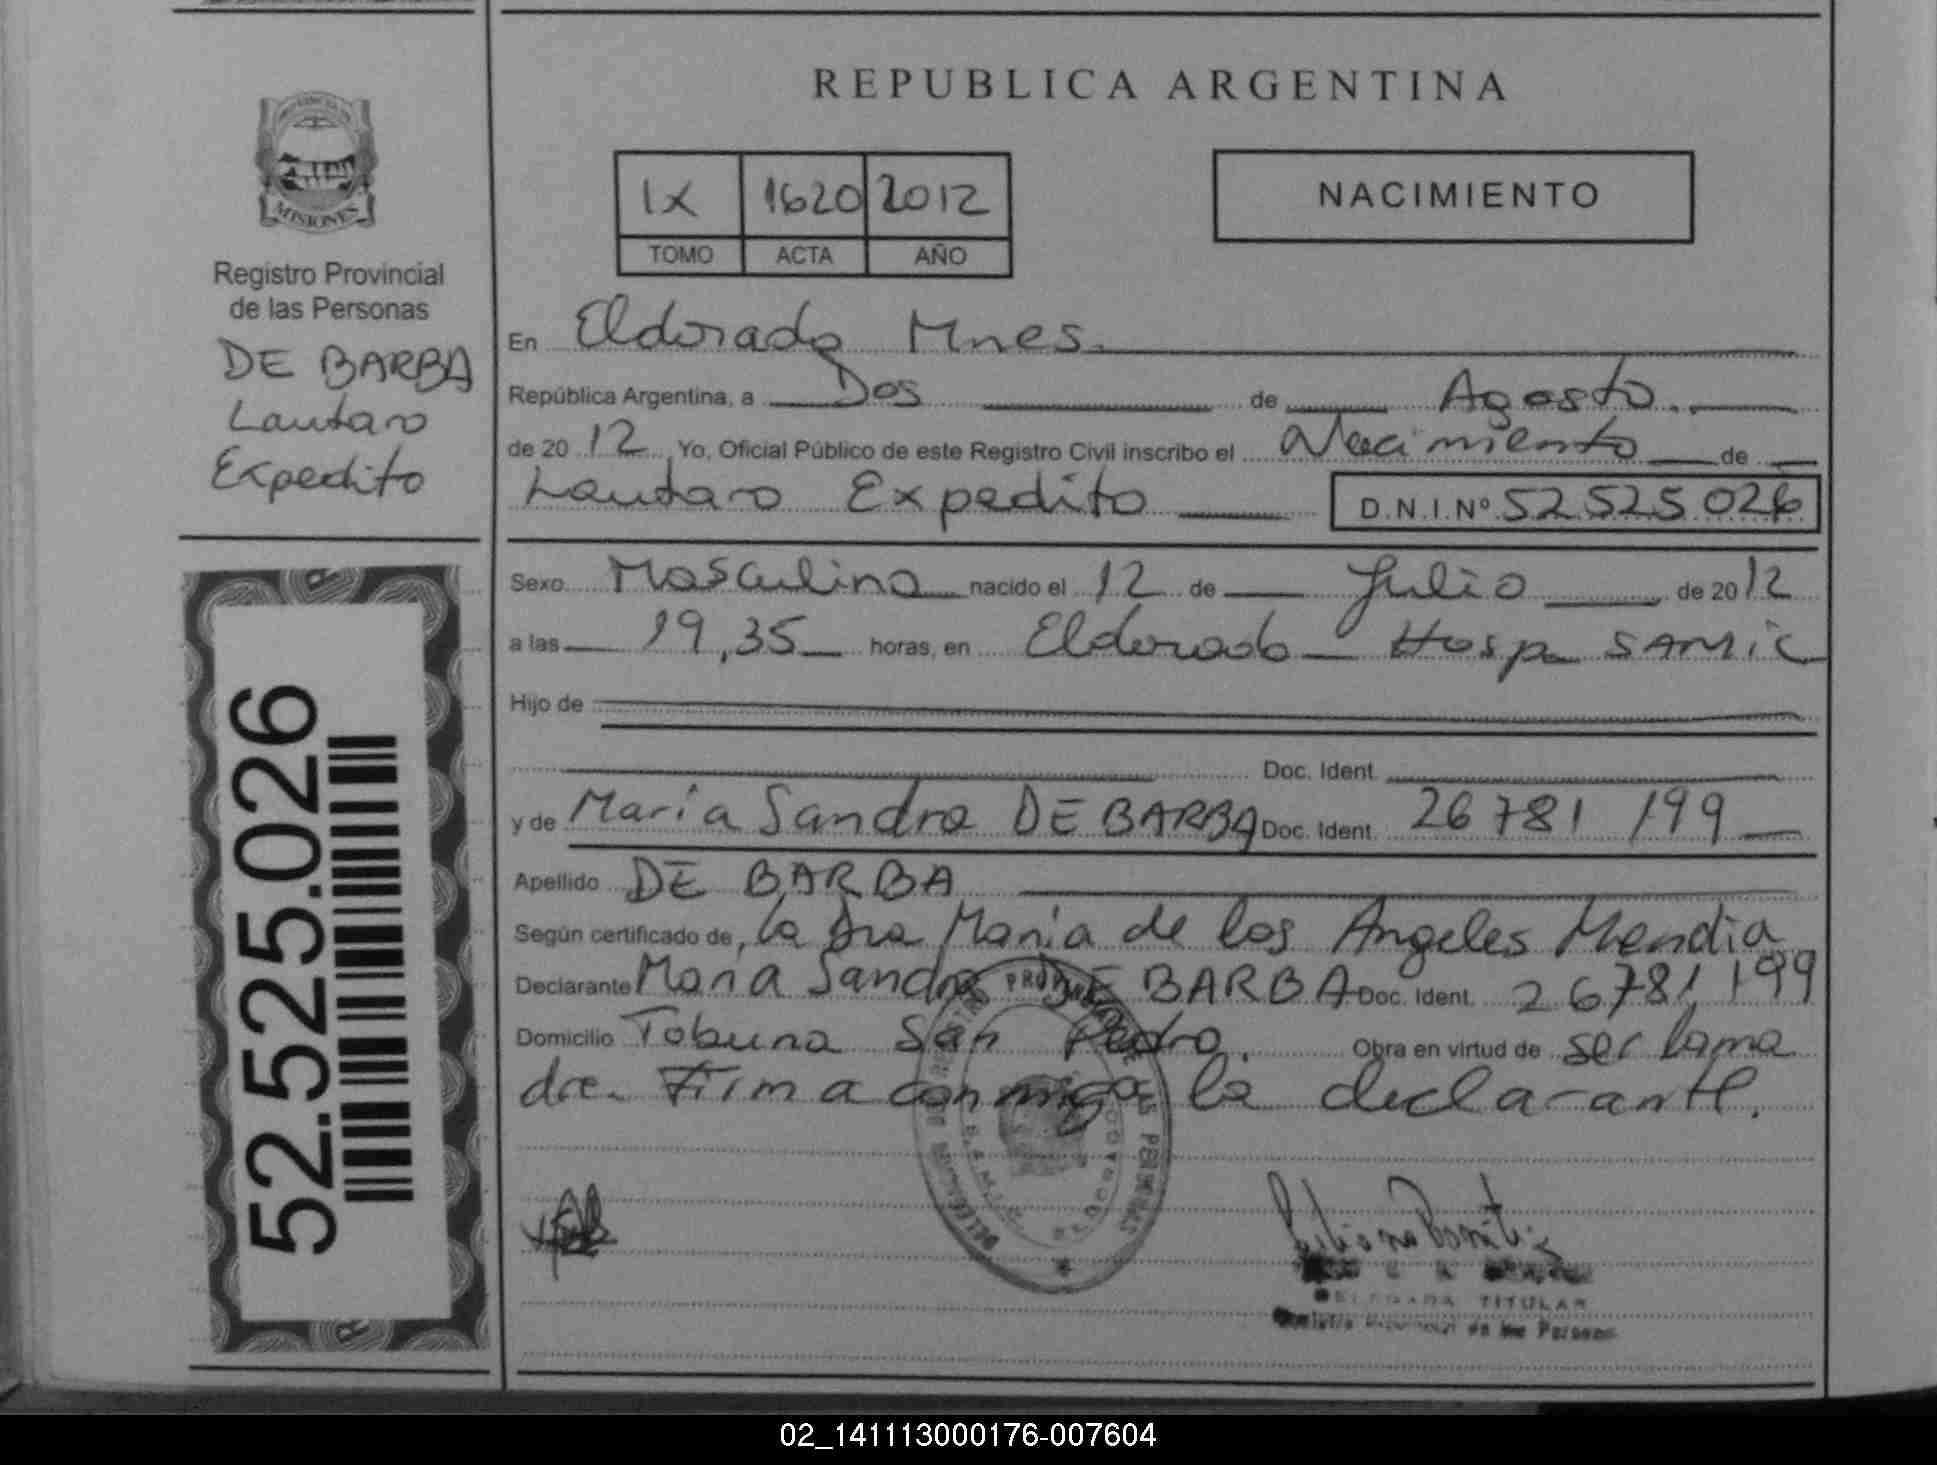 REPUBLICA ARGENTINA
MISIONES
Registro Provincial
de las Personas
DE BARBA
Lautaro
Expedito
52.525.026
IX 1620 2012
TOMO ACTA AÑO
NACIMIENTO
En Eldorado Mnes.
República Argentina, a Dos de Agosto.
de 20 12 Yo, Oficial Público de este Registro Civil inscribo el Nacimiento de
Lautaro Expedito D.N.I.Nº 52 525 026
Sexo Masculino nacido el 12 de Julio de 20 12
a las 19,35 horas, en Eldorado Hosp SAMIC
Hijo de
Doc. Ident.
y de Maria Sandra DE BARBA Doc. Ident. 26 781 199
Apellido DE BARBA
Según certificado de, la Dra Maria de los Angeles Mendia
Declarante Maria Sandra DE BARBA Doc. Ident. 26781,199
Domicilio Tobuna San Pedro. Obra en virtud de ser la ma
dre. Firma conmigo la declarante.
ELDORADO
DELEGADA TITULAR
de las Personas
02_141113000176-007604